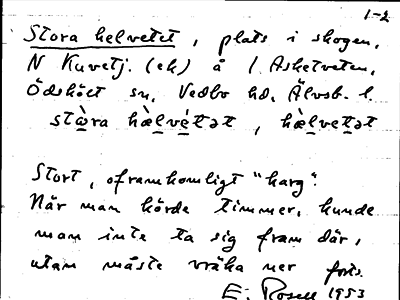 1-2
Stora helvetet, plats i skogen,
N Kuvetj. (ek) å / Asketveten,
Ödskölt sn, Vedbo hd, Älvsb. l.
stɷ̀ra hæ̀lvéttət, hæ̀lvetət
Stort, oframkomligt "harg".
När man körde timmer, kunde
man inte ta sig fram där,
utan måste vräka ner forts.
E. Rosell 1953